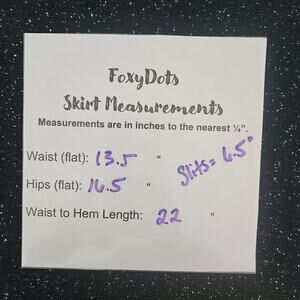 FoxyDots
Skirt Measurements
Measurements are in inches to the nearest ¼".
Waist (flat): 13.5 "
Slits= 6.5"
Hips (flat): 16.5 "
Waist to Hem Length: 22 "